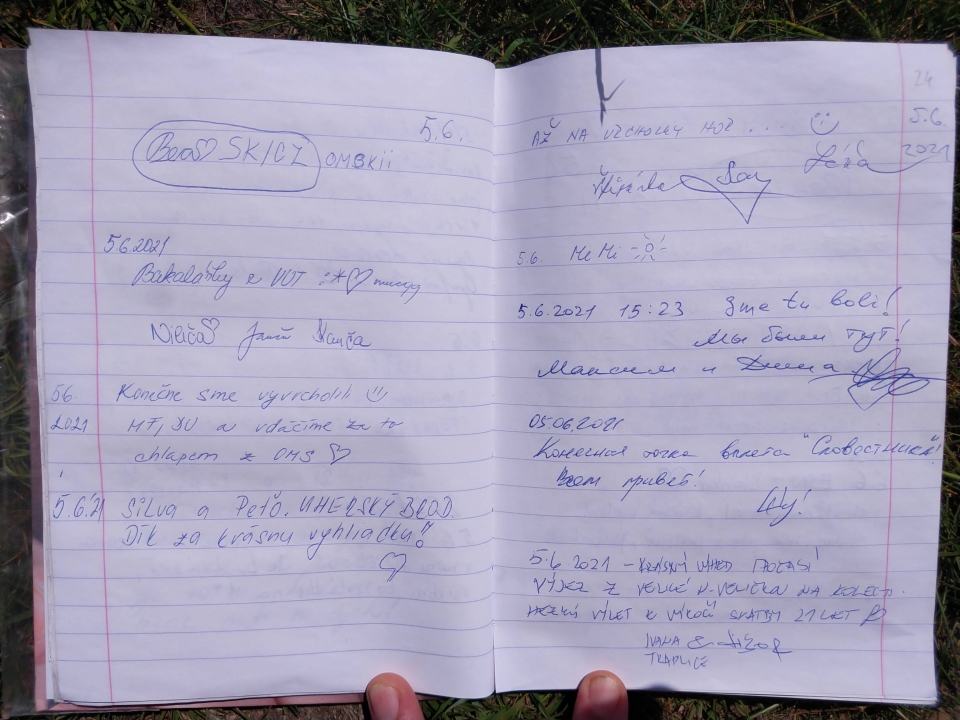 5.6.
Bea♡ SK/CZ
5.6.2021
Bakalářky z VUT :*♡
Janči
5.6. Konečne sme vyvrcholili
2021 MT, DU a vďačíme za to
chlapem z OMS ♡
5.6.'21 Silva a Peťo. UHERSKÝ BROD.
Dík za krásnu vyhliadku!!
♡
24
AŽ NA VRCHOLKY HOR ... 5.6.
2021
5.6. MeMi
5.6.2021 15:23 Sme tu boli!
Мы были тут!
Максим и
05.06.2021
Конечная точка вылета
Всем привет!
5.6 2021 – KRÁSNÝ VÝHLED POČASÍ
VÝJEZ Z VELKÉ N. VELIČKA NA KOLECH.
HEZKÝ VÝLET K VÝROČÍ SVATBY 21 LET
IVANA &
TRAPLICE